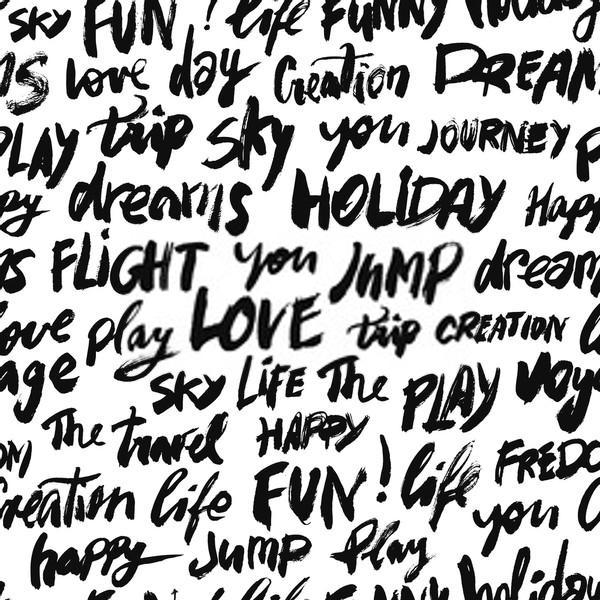 SKY FUN! life FUNNY holiday
love day Creation DREAM
PLAY trip sky you JOURNEY
dreams HOLIDAY Happ
FLiGHT you JuMP dream
love play LOVE trip CREATION
age SKY LiFE The PLAY Voya
The travel HAPPY
Creation life FUN! life FREEDO
you
happy Jump Play
life FUNNY holiday